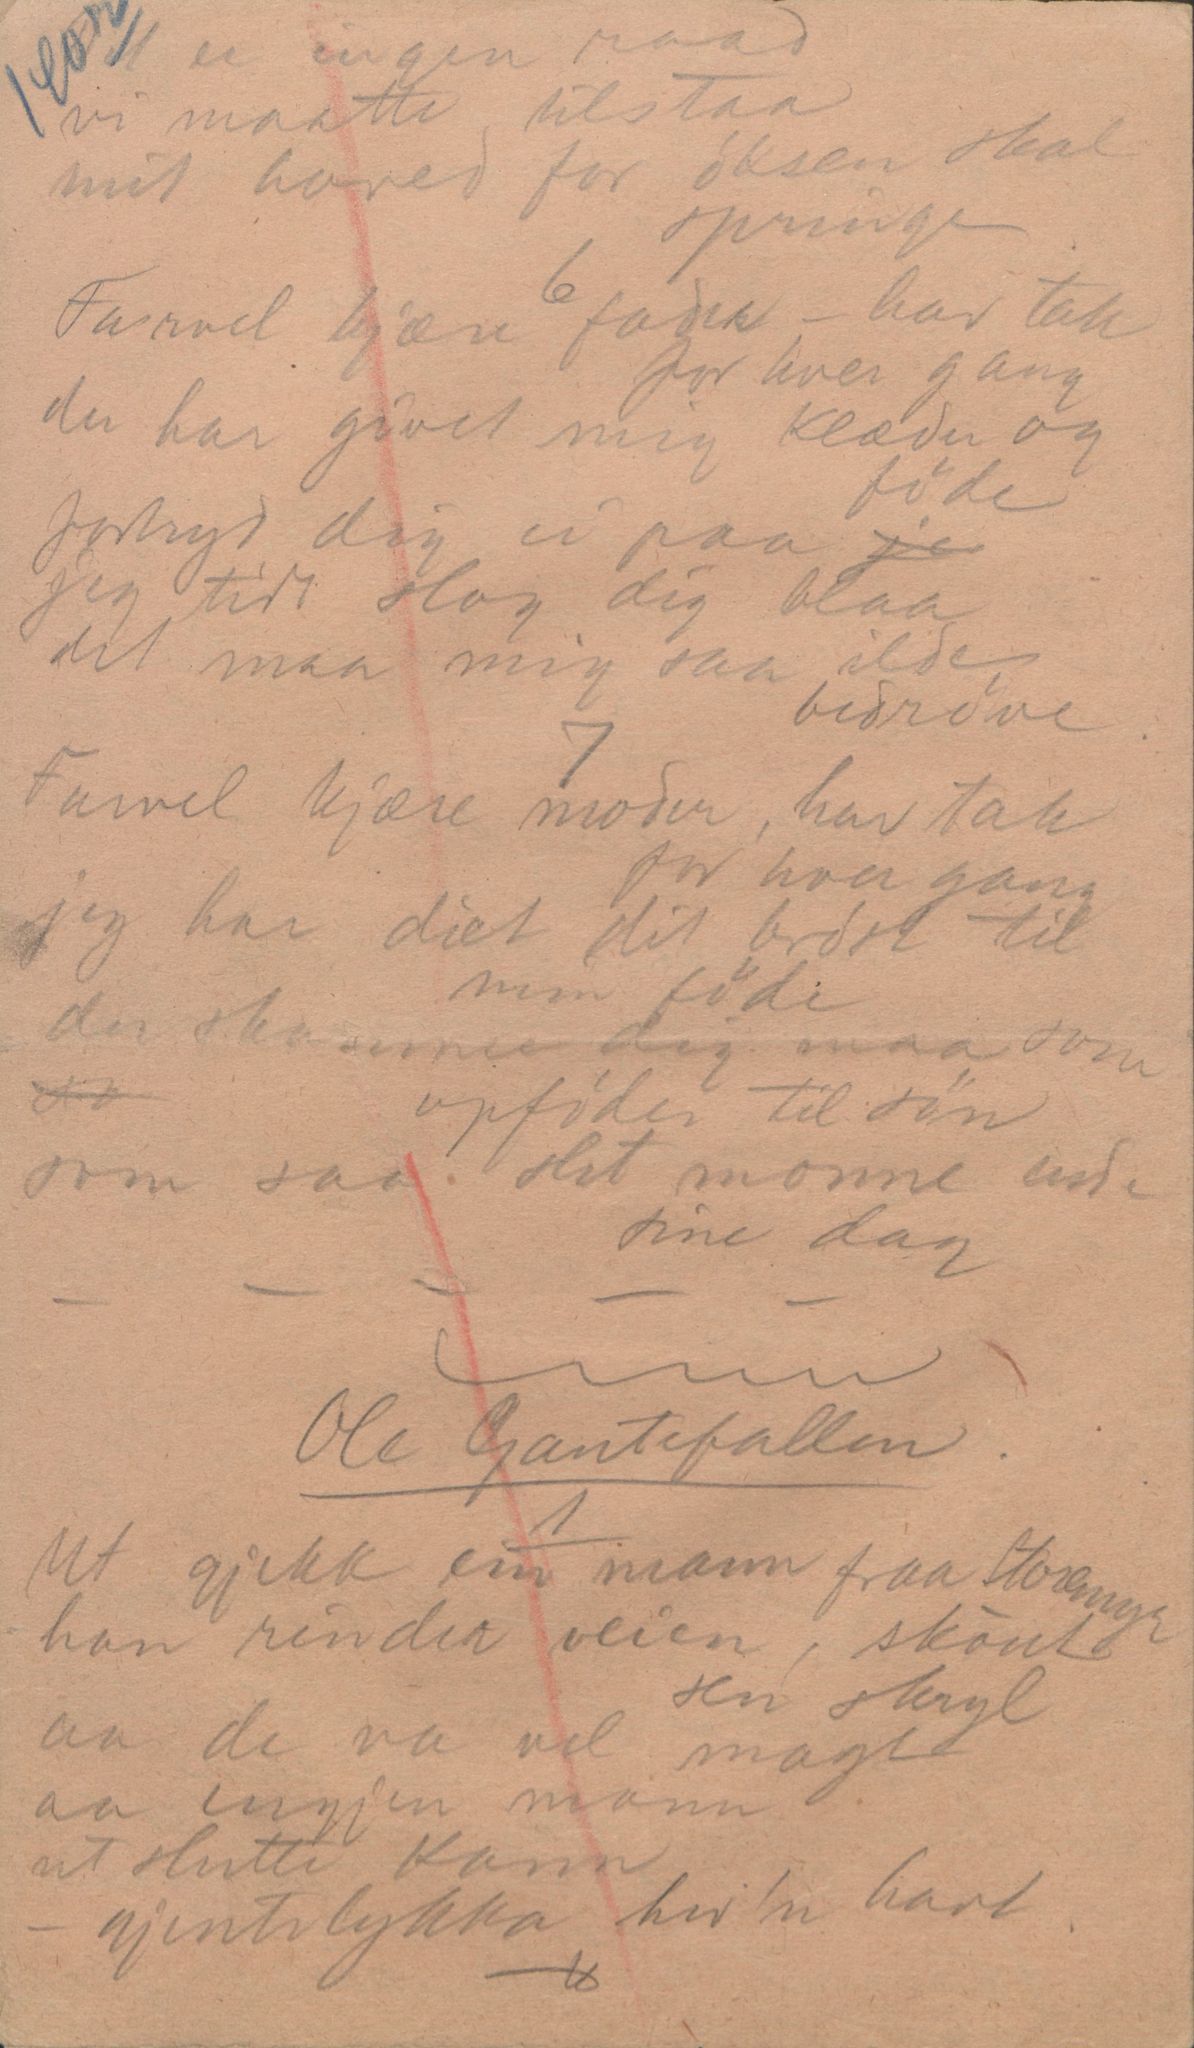 er ingen raad
vi maatte tilstaa
mit hoved for öksen skal
springe
6
Farvel kjære fader – hav tak
for hver gang
du har givet mig klæder og
föde
fortryd dig ei paa je
jeg tidt slog dig blaa
det maa mig saa ilde
bedröve.
7
Farvel kjære moder, hav tak
for hver gang
jeg har diet dit bröst til
min föde
du skamme dig maa som
so opföder til sön
som saa slet monne ende
sine dag
– – – – –
Ole Gantefallen.
1
Ut gjekk ein mann fraa Storemyr
han rinder veien, sköut
sen skryl
aa de va vel magt
aa engjen mann
ut slutte kann
– gjentelykka her'n havt.